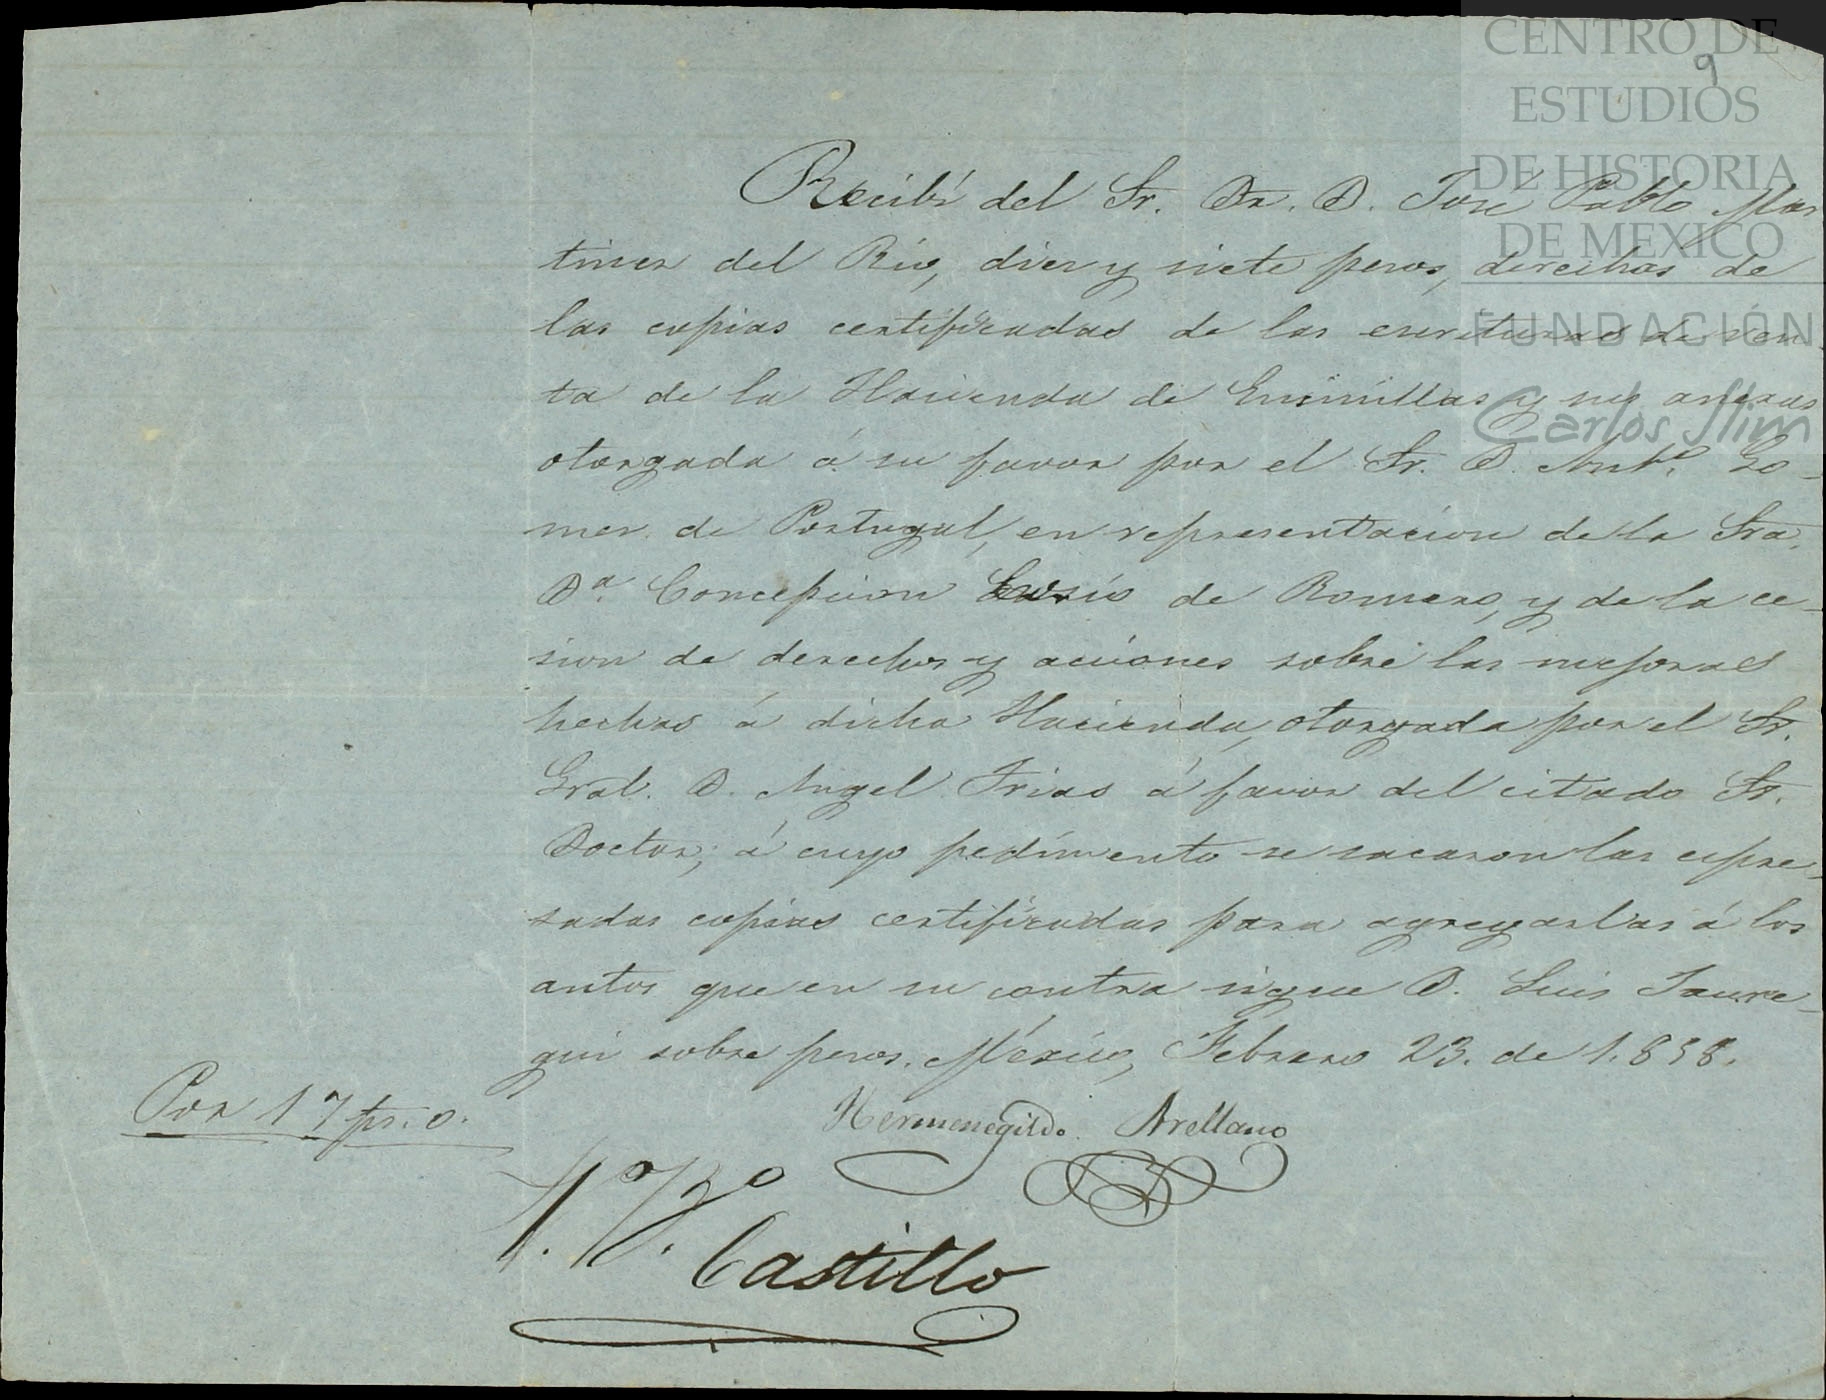 CENTRO DE
ESTUDIOS
DE HISTORIA
DE MEXICO
FUNDACIÓN
Carlos Slim
9
Recibí del Sr. Dr. D. José Pablo Mar
tinez del Rio, diez y siete pesos, derechos de
las copias certificadas de las escrituras de ven
ta de la Hacienda de Encinillas y sus anexas
otorgada á su favor por el Sr. D. Antº. Go-
mez de Portugal, en representacion de la Sra.
Dª. Concepcion Cosío de Romero, y de la ce-
sion de derechos y acciones sobre las mejoras
hechas á dicha Hacienda, otorgada por el Sr.
Gral. D. Angel Frias á favor del citado Sr.
Doctor; á cuyo pedimento se sacaron las espre-
sadas copias certificadas para agregarlas á los
autos que en su contra sigue D. Luis Jaure-
gui sobre pesos. México, Febrero 23. de 1.858.
Por 17 ps. 0.
Hermenegildo Arellano
V. B.º
Castillo